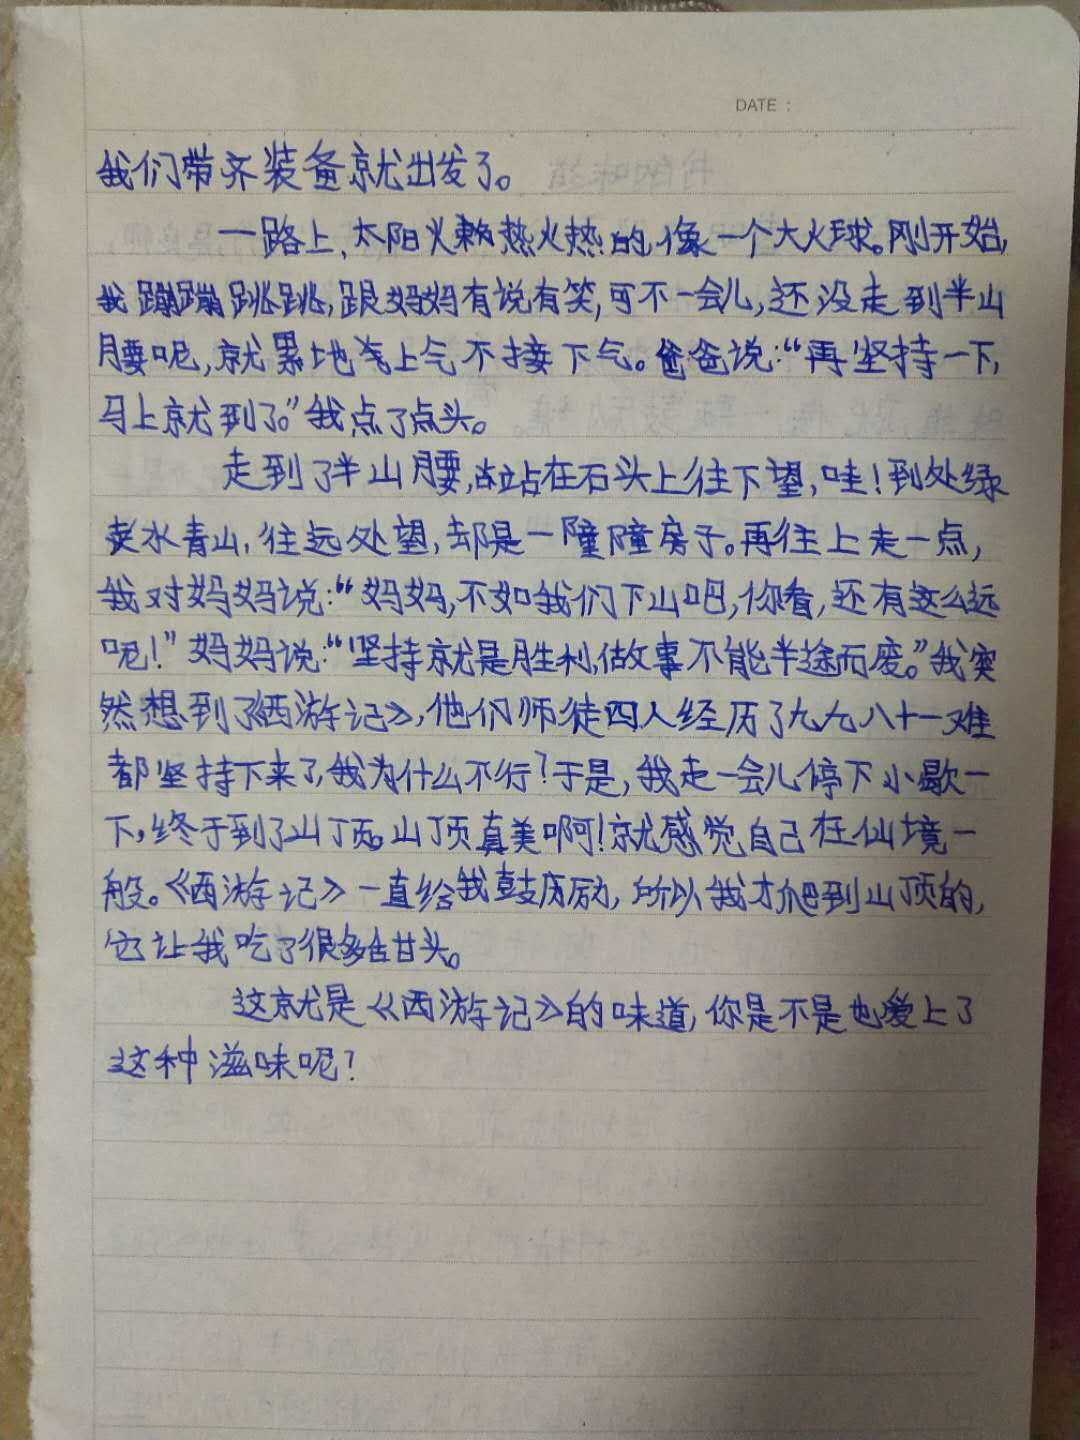 DATE：
我们带齐装备就出发了。
一路上，太阳火辣热火热的，像一个大火球。刚开始，
我蹦蹦跳跳，跟妈妈有说有笑，可不一会儿，还没走到半山
腰呢，就累地气上气不接下气。爸爸说：“再坚持一下，
马上就到了。”我点了点头。
走到了半山腰，站在石头上往下望，哇！到处绿
水青山，往远处望，却是一幢幢房子。再往上走一点，
我对妈妈说：“妈妈，不如我们下山吧，你看，还有这么远
呢！”妈妈说：“坚持就是胜利，做事不能半途而废。”我突
然想到了《西游记》，他们师徒四人经历了九九八十一难
都坚持下来了，我为什么不行？于是，我走一会儿停下小歇一
下，终于到了山顶。山顶真美啊！就感觉自己在仙境一
般。《西游记》一直给我鼓励，所以我才爬到山顶的，
它让我吃了很多苦头。
这就是《西游记》的味道，你是不是也爱上了
这种滋味呢？